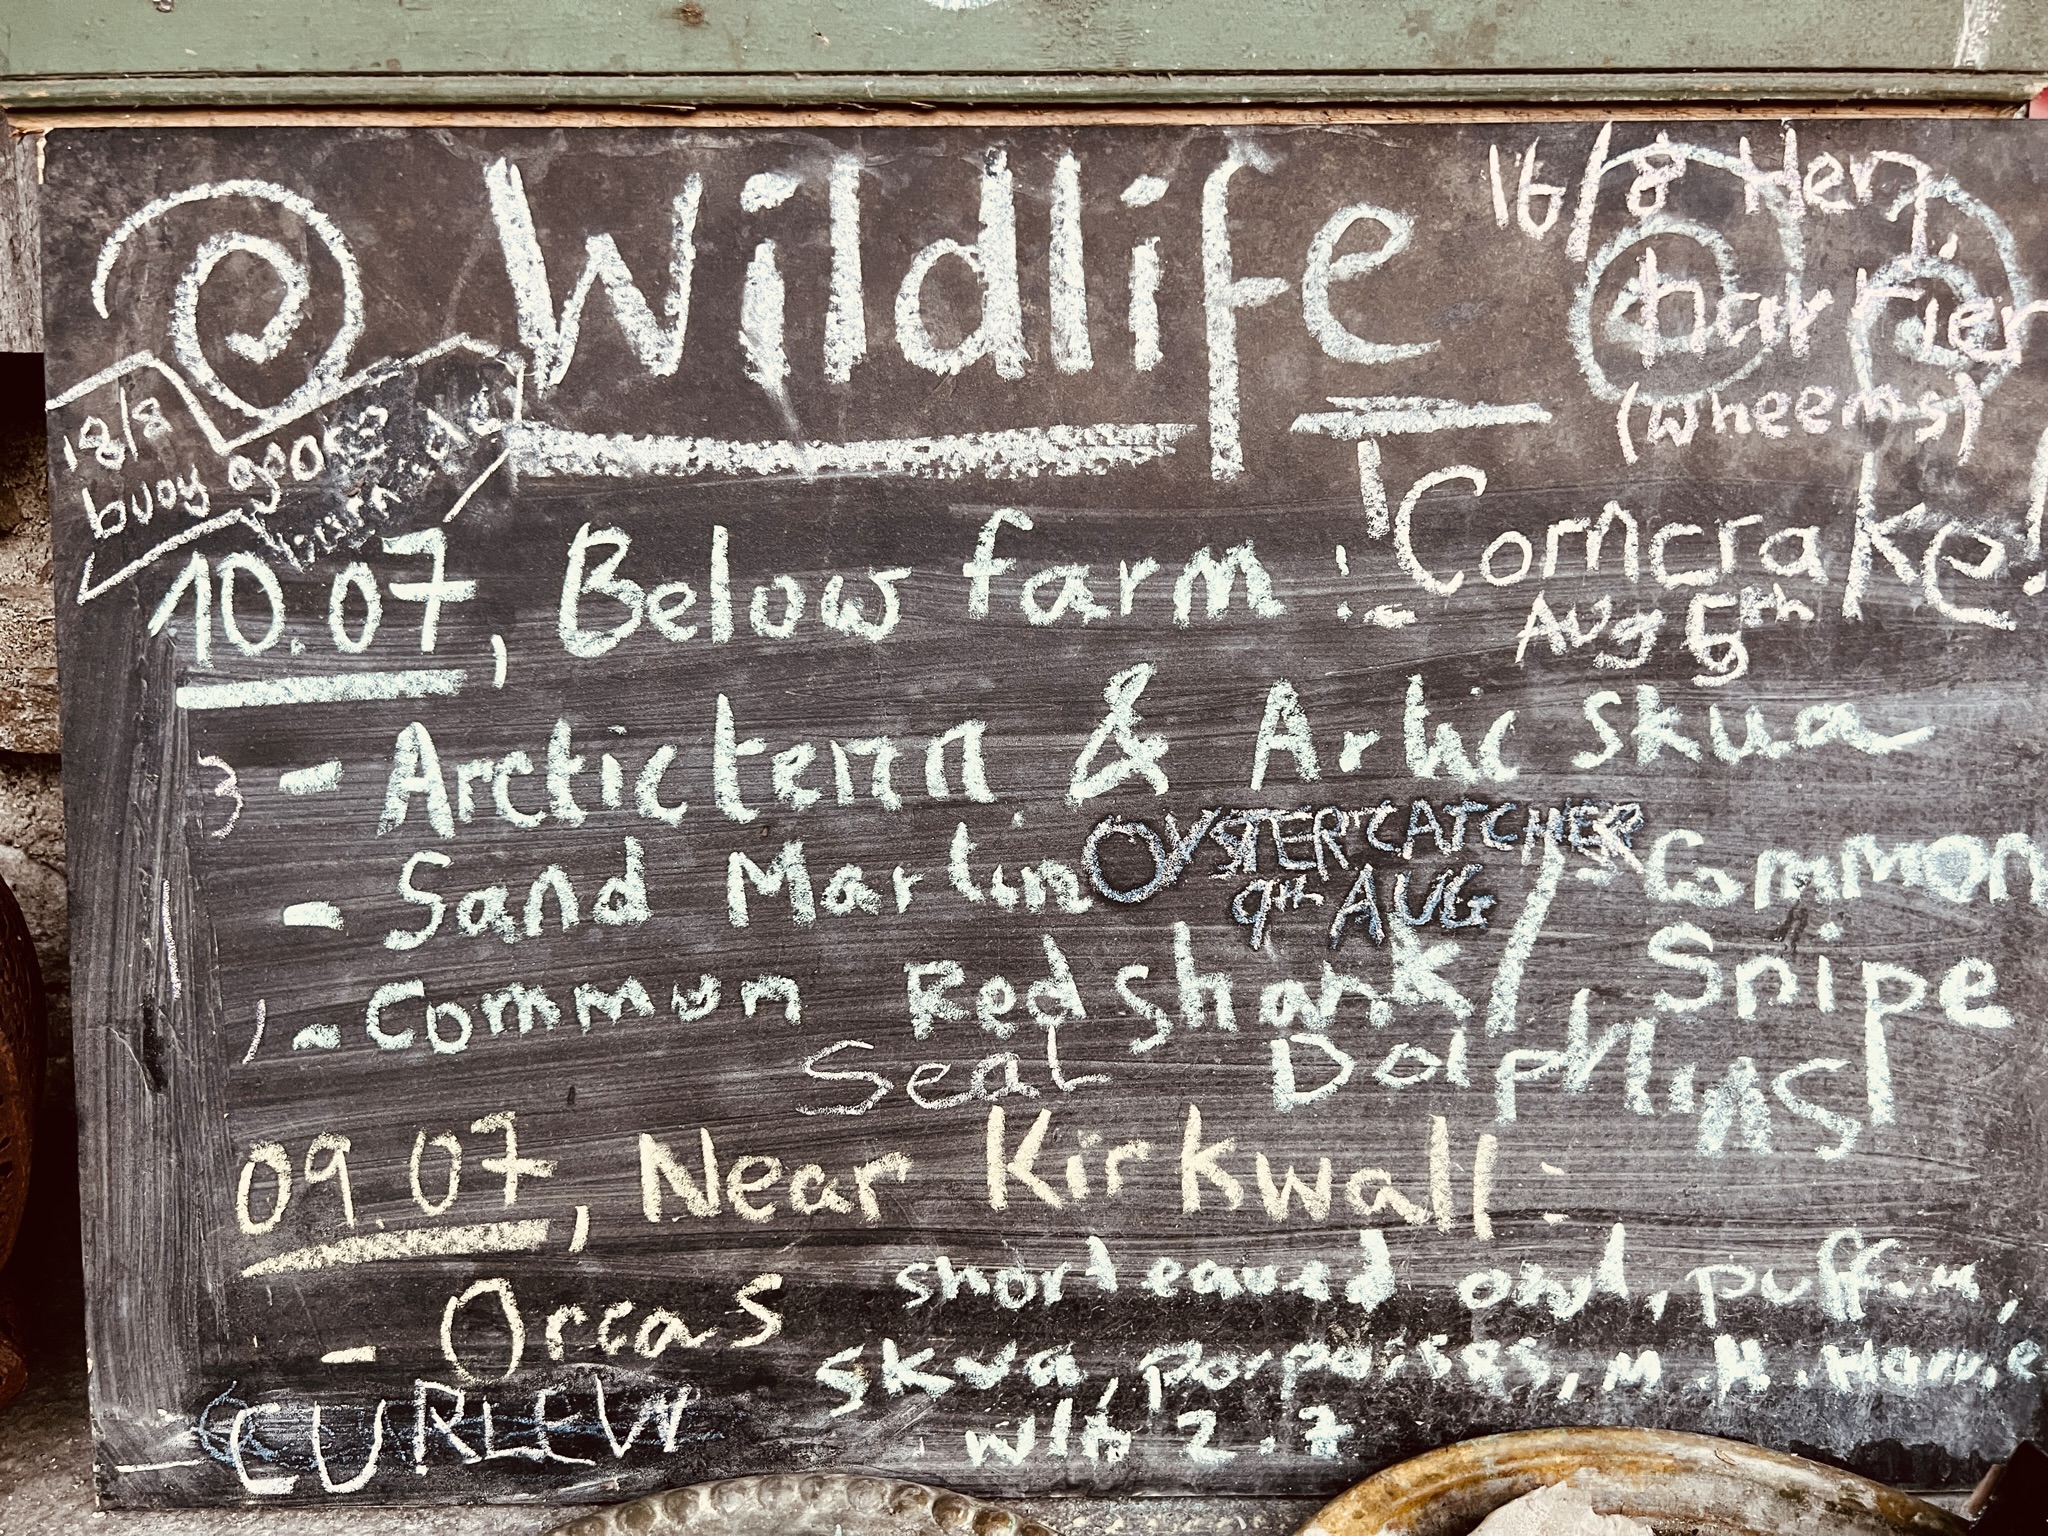 Wildlife
16/8 Hen
harrier
(wheems)
18/8
buoy gooks
burn side
10.07, Below farm :
! Corncrake!
Aug 5th
3 - Arctic tern & Artic skua
- Sand Martin
OYSTERCATCHER
9th AUG
- Common Redshank / Common
Snipe
Seal Dolphins
09.07, Near Kirkwall :
- Orcas
short eaured owl, puffin,
skua, porpoises, M.H. Harrie
w/b 2.7
- CURLEW